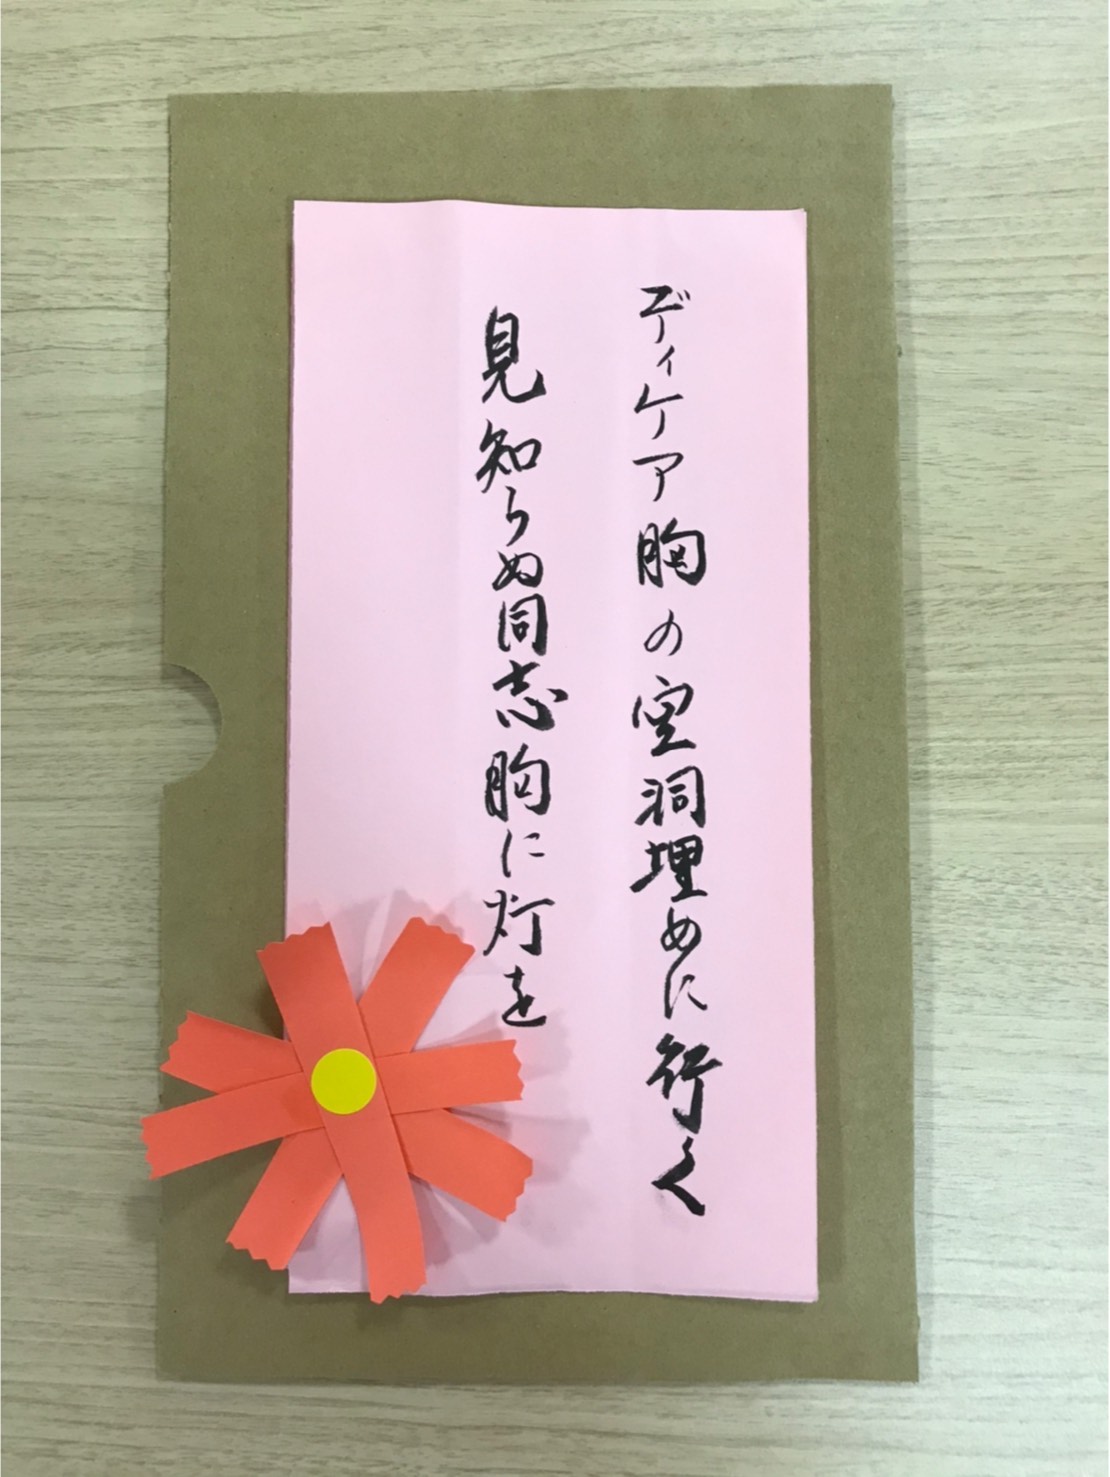 ディケア胸の空洞埋めに行く
見知らぬ同志胸に灯を